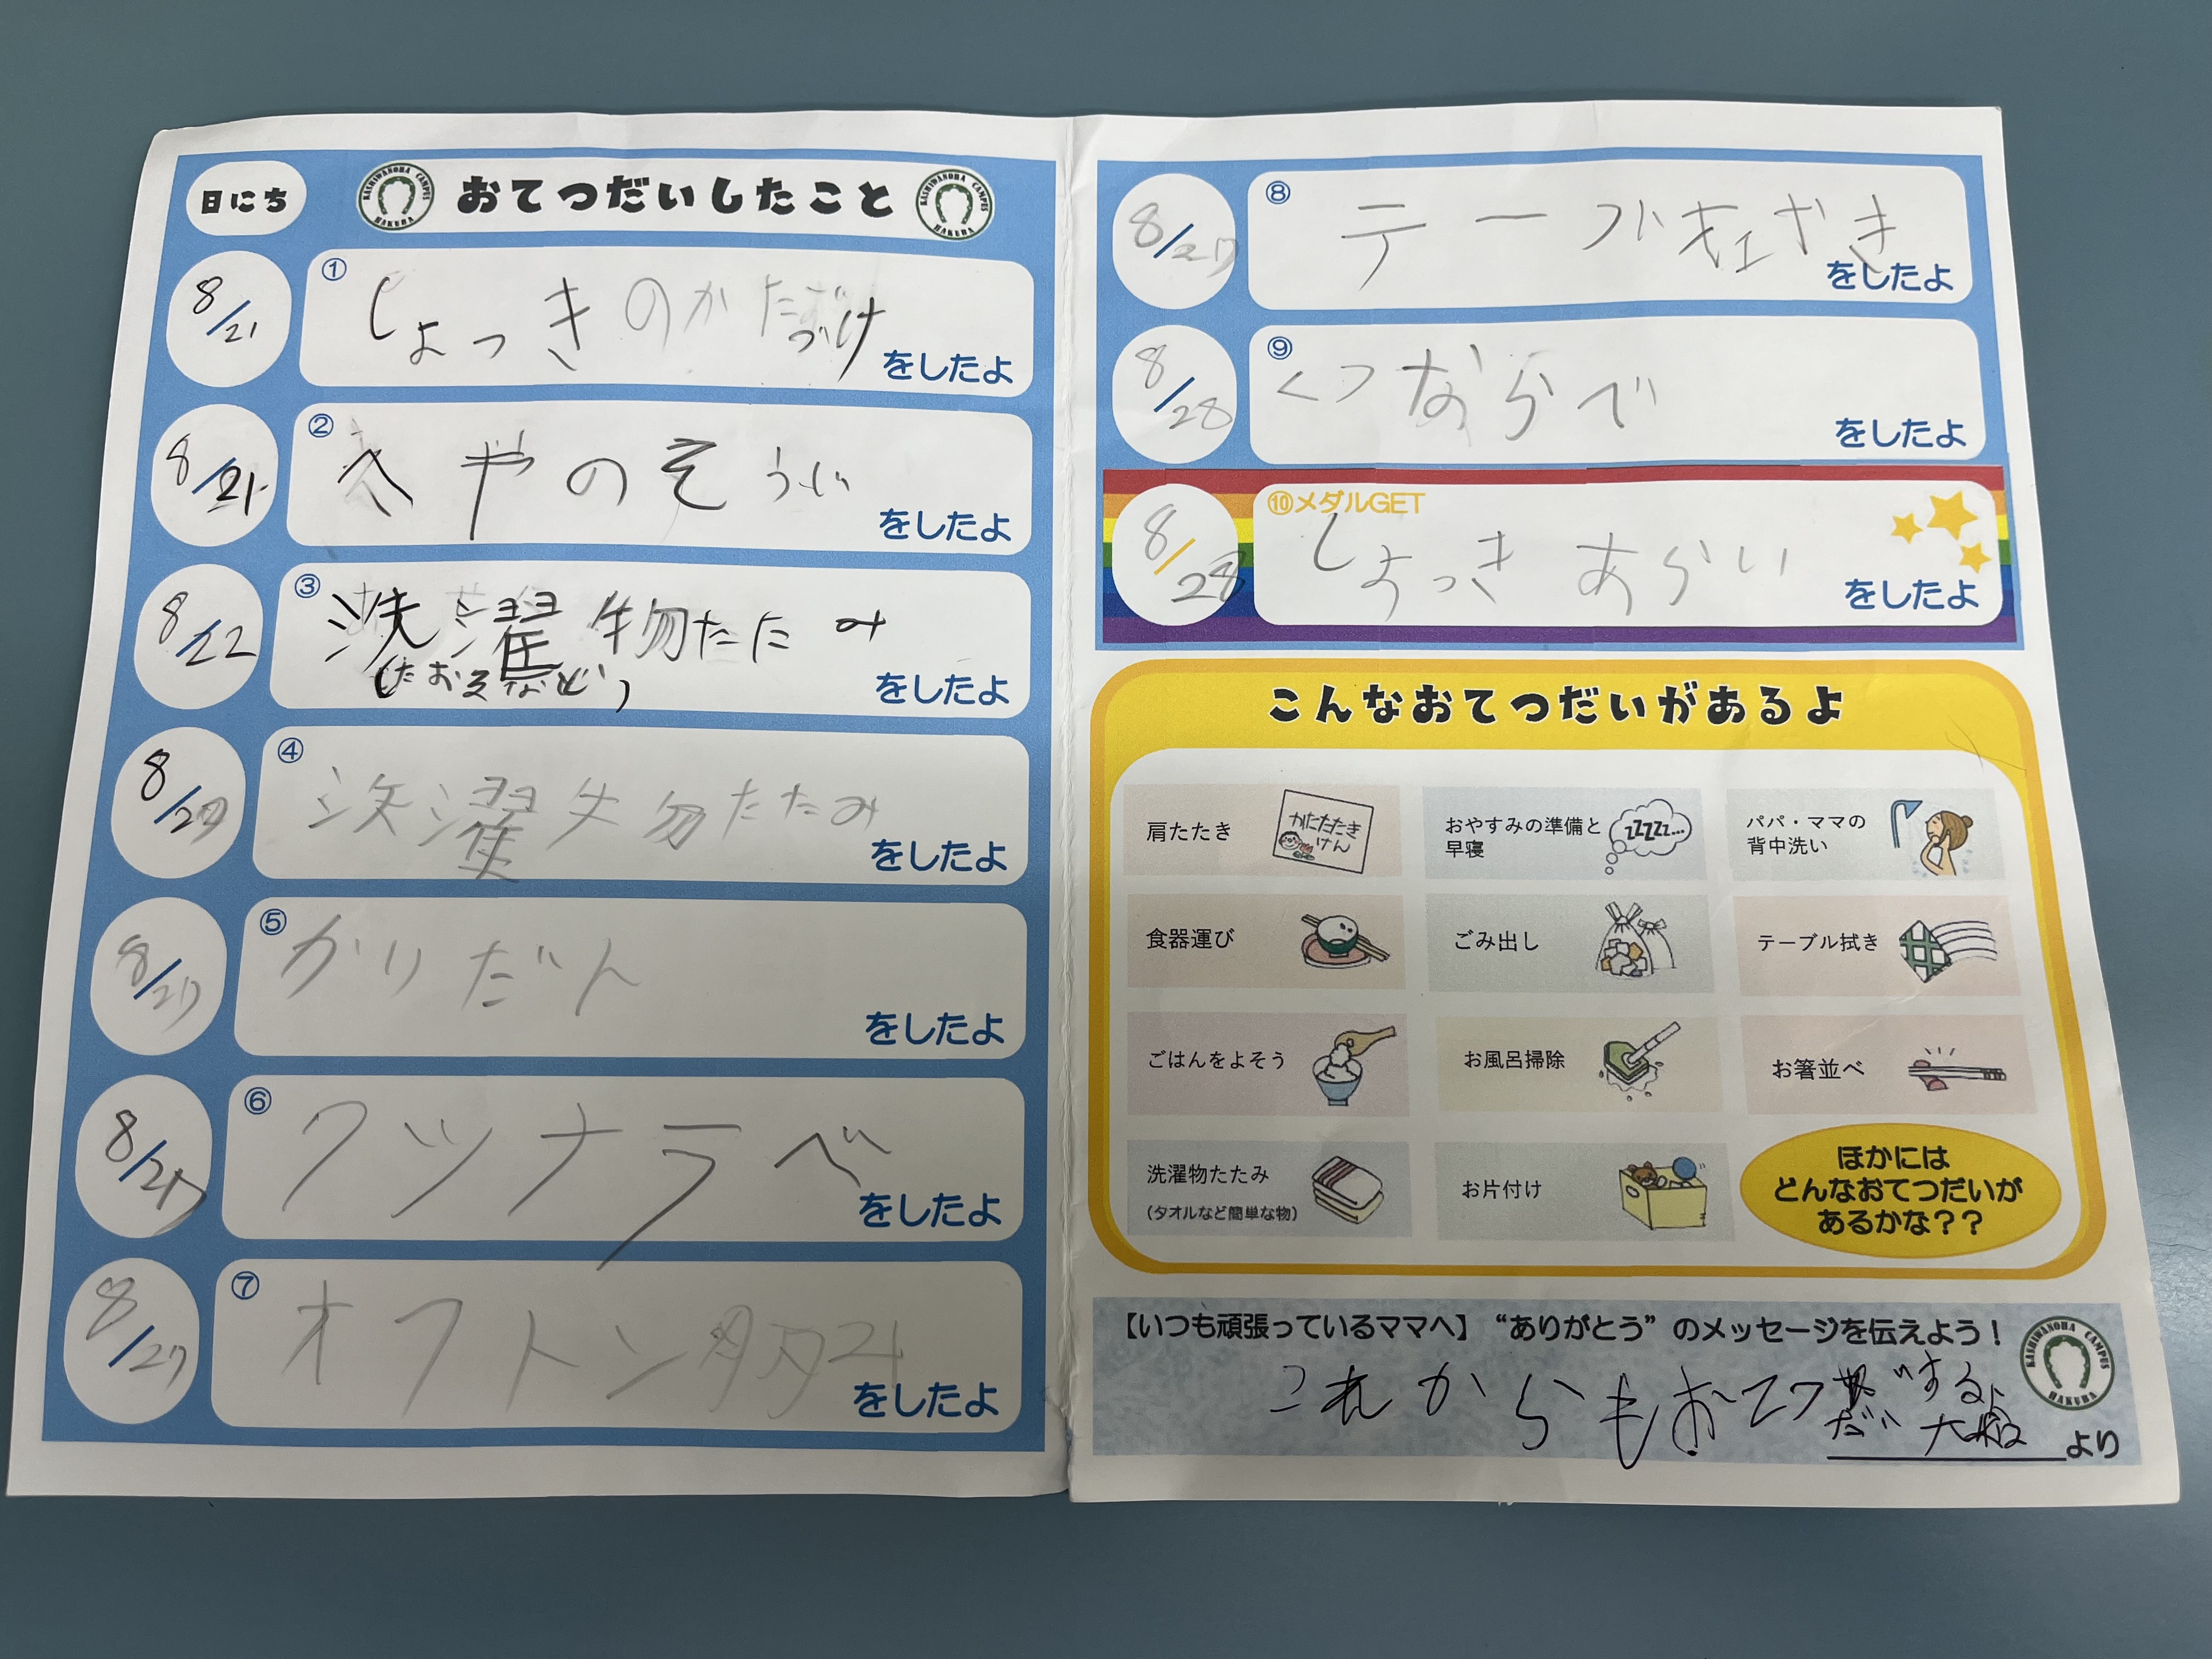 日にち
おてつだいしたこと
KASHIWANOHA CAMPUS HAKUBA
KASHIWANOHA CAMPUS HAKUBA
8/21
①
しょっきのかたづけ
をしたよ
8/21
②
へやのそうじ
をしたよ
8/22
③
洗濯物たたみ
をしたよ
8/27
④
洗濯物たたみ
をしたよ
8/27
⑤
かりだん
をしたよ
8/27
⑥
クツナラべ
をしたよ
8/27
⑦
オフトン
をしたよ
8/27
⑧
テーブル拡やき
をしたよ
8/28
⑨
くつならで
をしたよ
8/28
⑩メダルGET
しょっきあらい
をしたよ
こんなおてつだいがあるよ
肩たたき
かたたたき
けん
おやすみの準備と
早寝
ZZZZZ...
パパ・ママの
背中洗い
食器運び
ごみ出し
テーブル拭き
ごはんをよそう
お風呂掃除
お箸並べ
洗濯物たたみ
（タオルなど簡単な物）
お片付け
ほかには
どんなおてつだいが
あるかな？？
【いつも頑張っているママへ】“ありがとう”のメッセージを伝えよう！
KASHIWANOHA CAMPUS HAKUBA
これからもおてつだいするよ
より